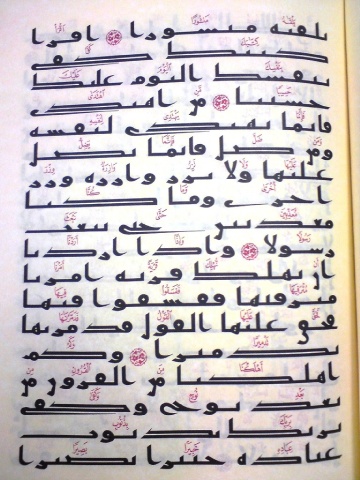 يلقيه منشورا ۝ اقرا
كتبك كفى
بنفسك اليوم عليك
حسيبا ۝ من اهتدى
فانما يهتدى لنفسه
ومن ضل فانما يضل
عليها ولا تزر وازره وزر
اخرى وما كنا
معذبين حتى نبعث
رسولا ۝ واذا اردنا
ان نهلك قريه امرنا
مترفيها ففسقوا فيها
فحق عليها القول فدمرنها
تدميرا ۝ وكم
اهلكنا من القرون من
بعد نوح وكفى
بربك بذنوب
عباده خبيرا بصيرا